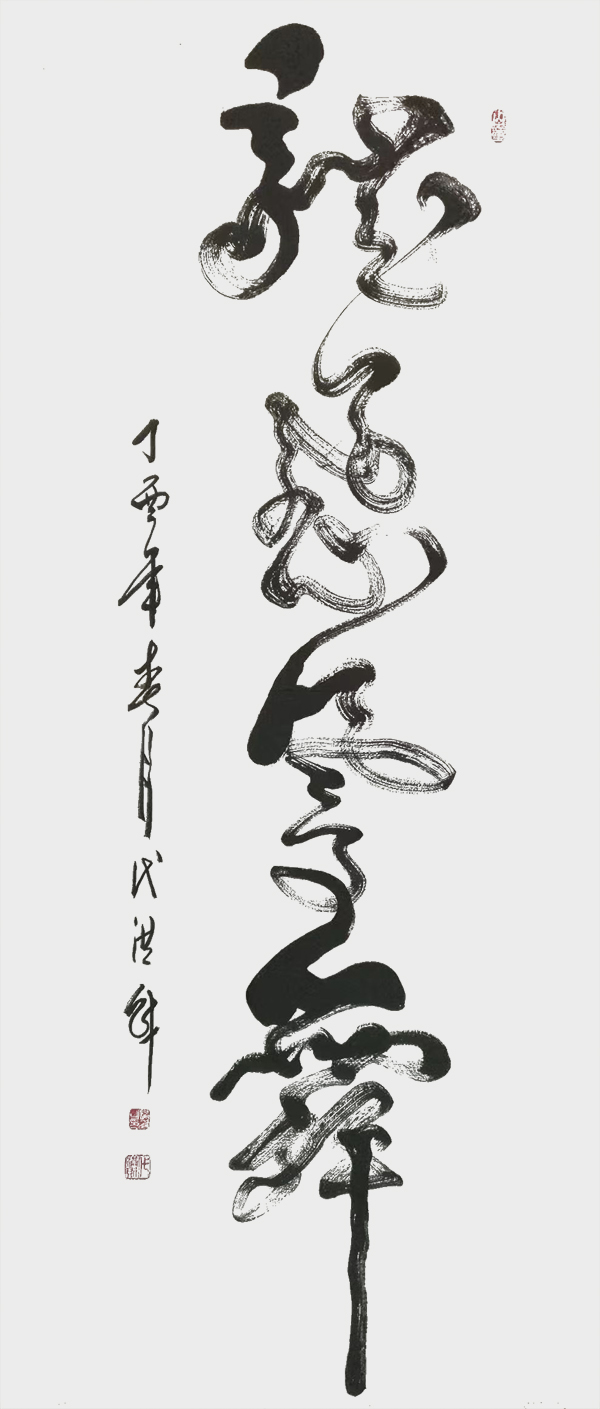 龍飛鳳舞
丁酉年春月代洪